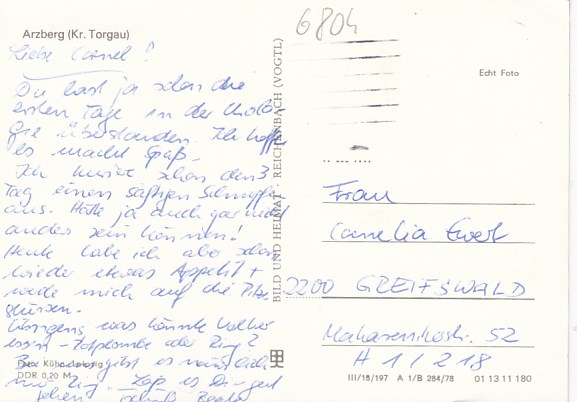 Arzberg (Kr. Torgau)
Liebe Cornel!
Du hast ja schon die
ersten Tage in der
überstanden. Ich hoffe
es macht Spaß.
Ich kuriere schon den 3.
Tag einen saftigen Schnupfen
aus. Hätte ja auch gar nicht
anders sein können!
Heute habe ich aber schon
wieder etwas Appetit +
werde mich auf die Pilze
stürzen.
Übrigens was könnte Volker
oder Ring?
gibt es
Foto: Kühn, Leipzig
DDR 0,20 M
BILD UND HEIMAT REICHENBACH (VOGTL)
6804
Echt Foto
Frau
Cornelia Ewert
2200 GREIFSWALD
Makarenkostr. 52
H 1/218
III/18/197 A 1/B 284/78 01 13 11 180